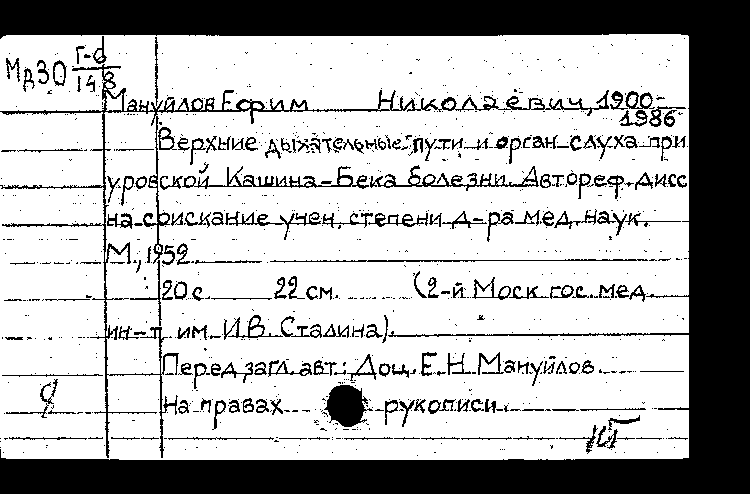 Мд30 Г-6
148
Мануйлов Ефим Николаевич, 1900-
1986
Верхние дыхательные пути и орган слуха при
уровской Кашина-Бека болезни. Автореф. дисс
на соискание учен. степени д-ра мед. наук.
М., 1952.
20 с 22 см. (2-й Моск. гос. мед.
ин-т им. И.В. Сталина).
Перед загл. авт.: Доц. Е.Н. Мануйлов.
На правах рукописи.